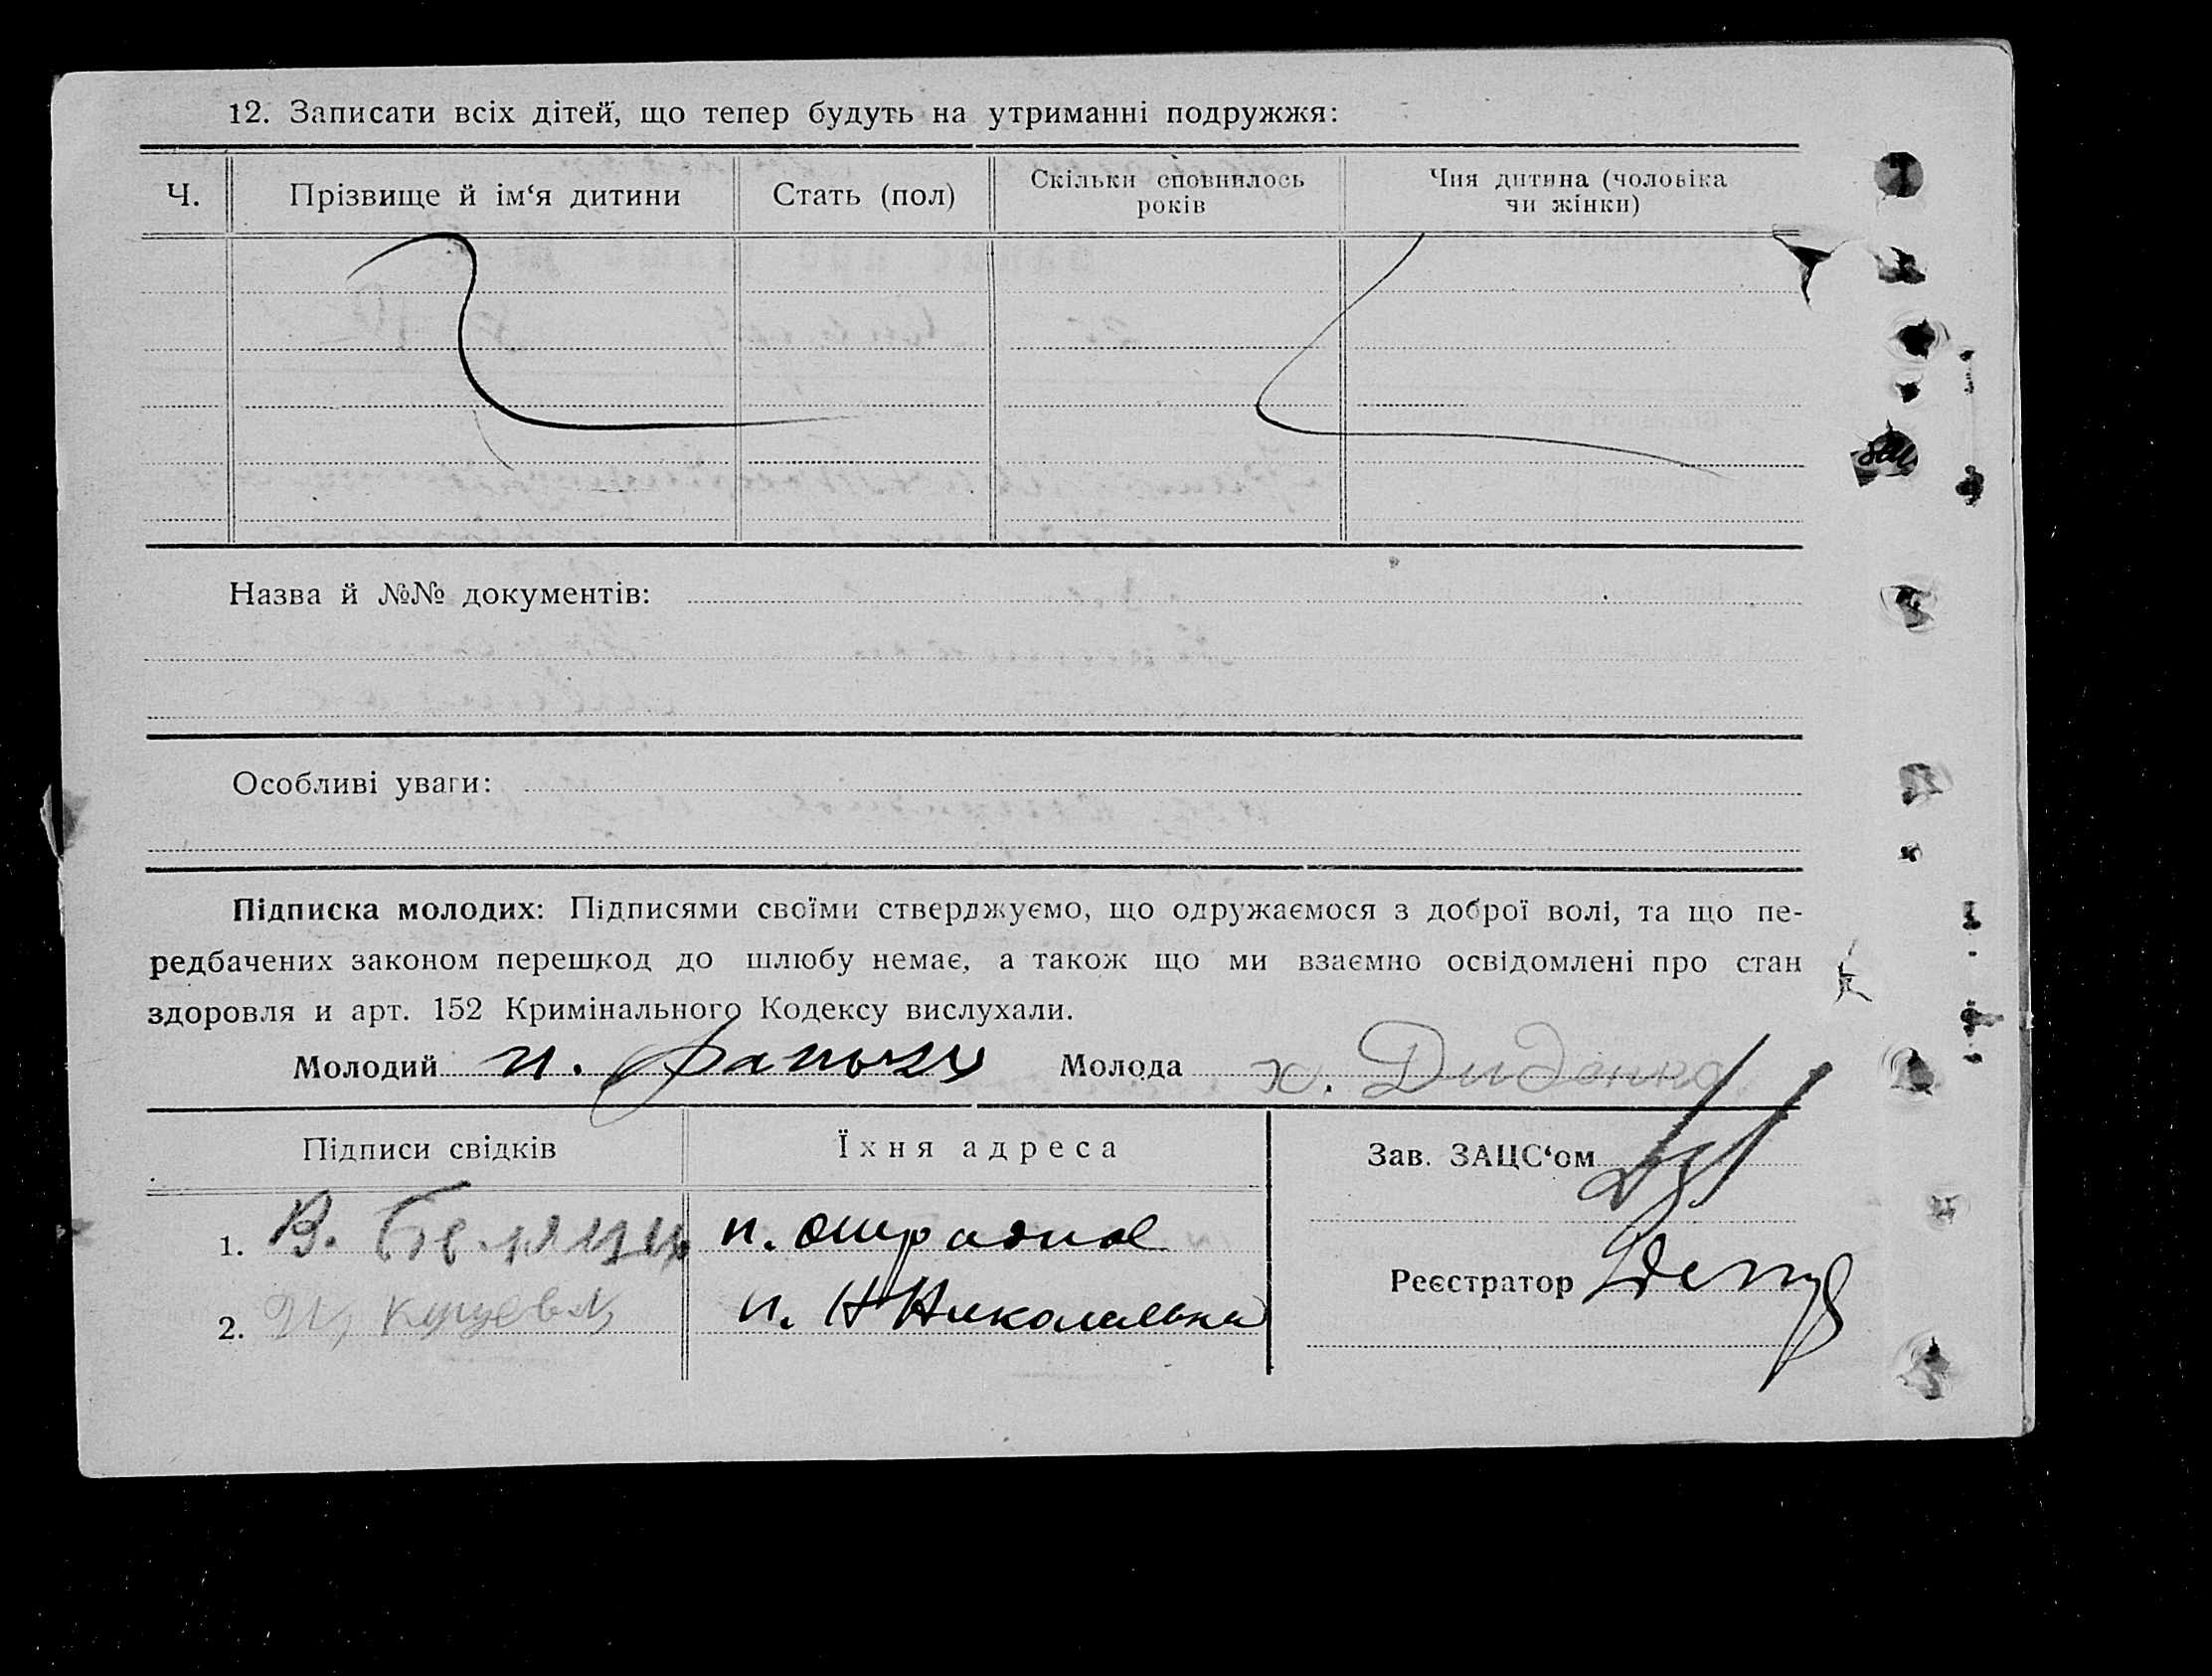 12. Записати всіх дітей, що тепер будуть на утриманні подружжя:
Ч. Прізвище й ім‘я дитини Стать (пол) Скільки сповнилось років Чия дитина (чоловіка чи жінки)
Назва й №№ документів:
Особливі уваги:
Підписка молодих: Підписями своїми стверджуємо, що одружаємося з доброї волі, та що пе-
редбачених законом перешкод до шлюбу немає, а також що ми взаємно освідомлені про стан
здоровля и арт. 152 Кримінального Кодексу вислухали.
Молодий и. Молода х. Диденко
Підписи свідків Їхня адреса Зав. ЗАЦС‘ом
1. В. п. отрадное
Реєстратор
2. п. Н